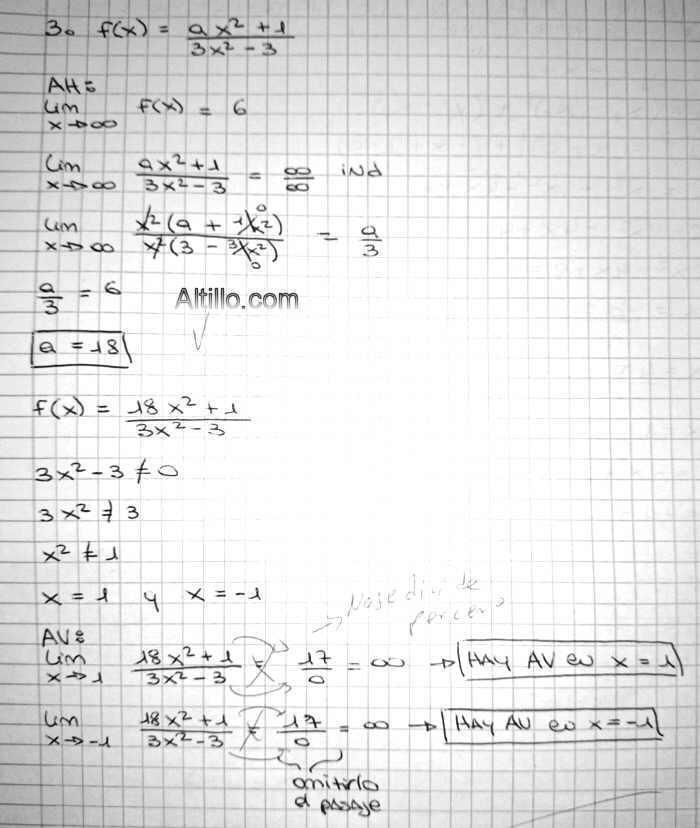 3. f(x) = (ax² + 1)/(3x² - 3)
AH:
Lim x→∞ f(x) = 6
Lim x→∞ (ax² + 1)/(3x² - 3) = ∞/∞ ind
Lim x→∞ x²(a + 1/x²)⁰/x²(3 - 3/x²)₀ = a/3
a/3 = 6
Altillo.com
a = 18
f(x) = (18x² + 1)/(3x² - 3)
3x² - 3 ≠ 0
3x² ≠ 3
x² ≠ 1
x = 1 y x = -1
No se divide
por cero
AV:
Lim x→1 (18x² + 1)/(3x² - 3) = 17/0 = ∞ → HAY AV en x = 1
Lim x→-1 (18x² + 1)/(3x² - 3) = 17/0 = ∞ → HAY AV en x = -1
omitirlo
el pasaje